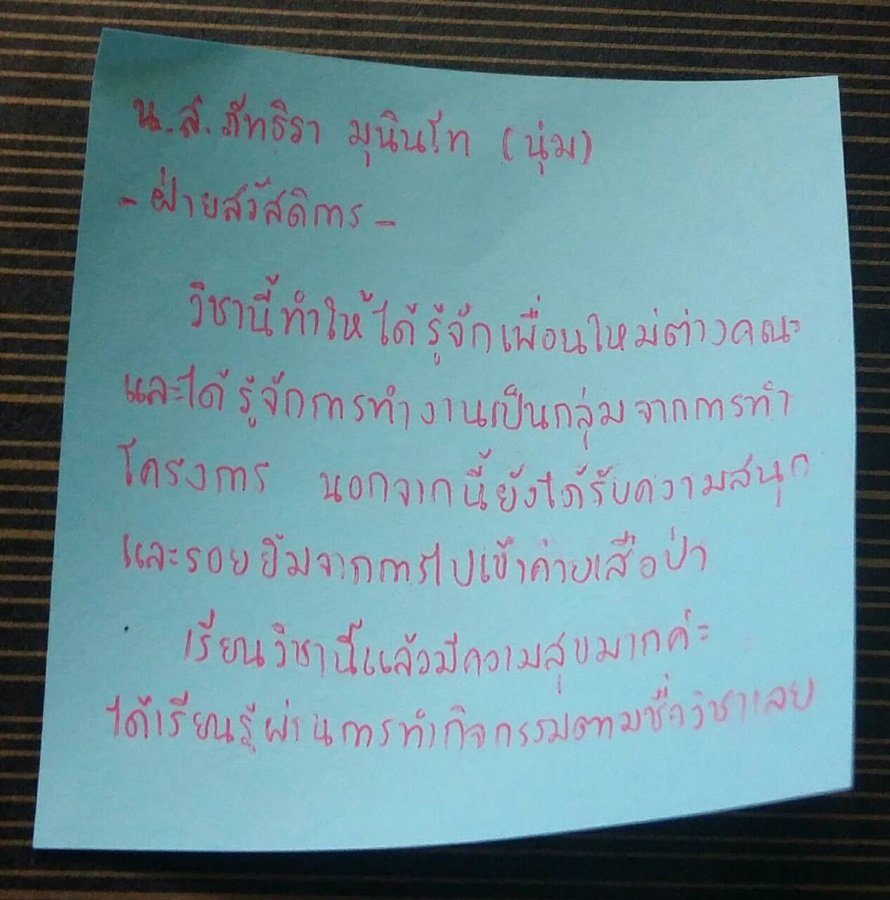 น.ส.ภัทธิรา มุนินโท (นุ่ม)
- ฝ่ายสวัสดิการ -
วิชานี้ทำให้ได้รู้จักเพื่อนใหม่ต่างคณะ
และได้รู้จักการทำงานเป็นกลุ่มจากการทำ
โครงการ นอกจากนี้ยังได้รับความสนุก
และรอยยิ้มจากการไปเข้าค่ายเสือป่า
เรียนวิชานี้แล้วมีความสุขมากค่ะ
ได้เรียนรู้ผ่านการทำกิจกรรมตามชื่อวิชาเลย